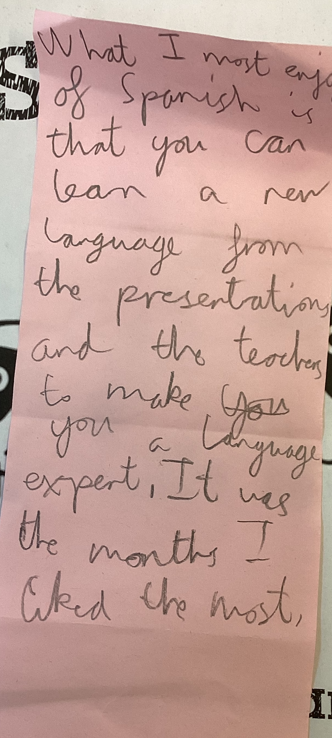 What I most enjo
of Spanish is
that you can
lean a new
language from
the presentations
and the teachers
to make you
you a language
expert, It was
the months I
liked the most,